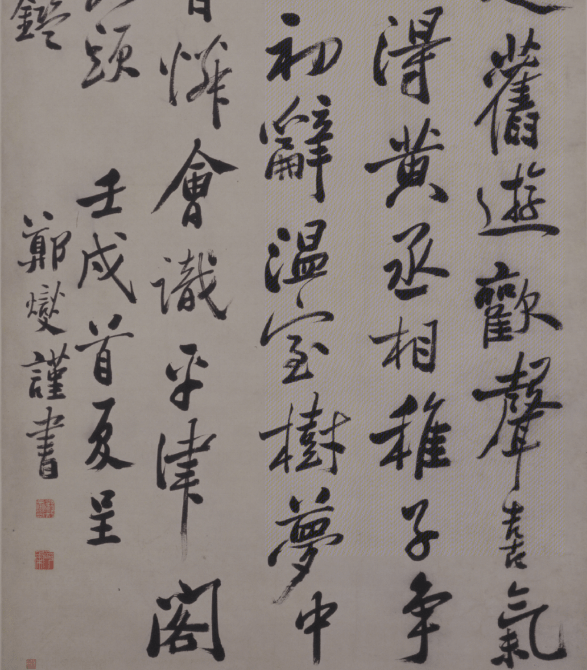 舊遊歡聲喜氣
得黃丞相稚子爭
初辭温室樹夢中
憐會識平津閣
壬戌首夏呈
鑑
鄭燮謹書